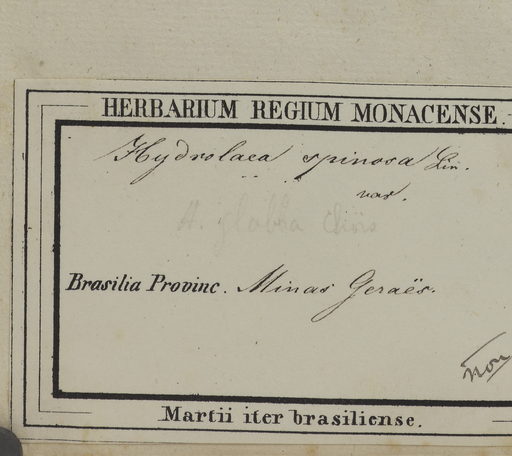 HERBARIUM REGIUM MONACENSE.
Hydrolaea spinosa Lin.
var.
H. glabra Chois
Brasilia Provinc. Minas Geraës.
non
Martii iter brasiliense.